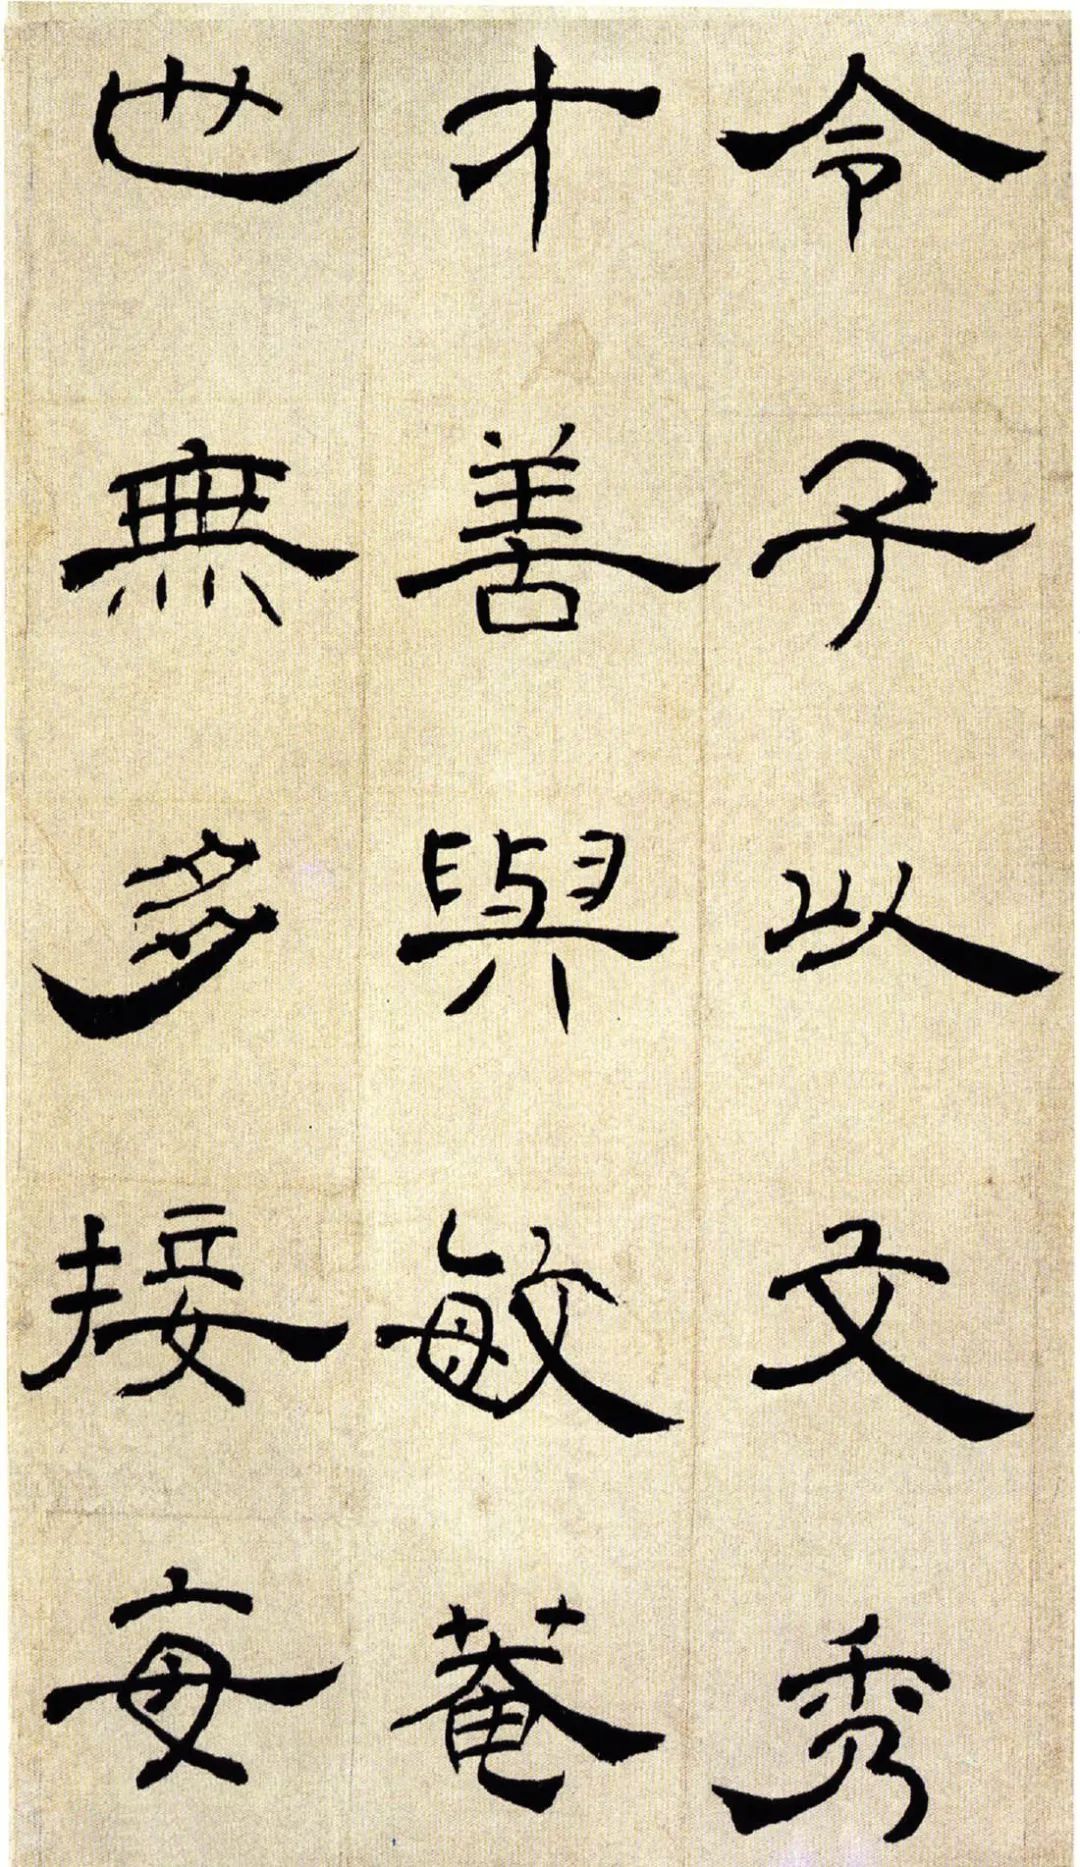 令子以文秀
才善與敏菴
也無多接